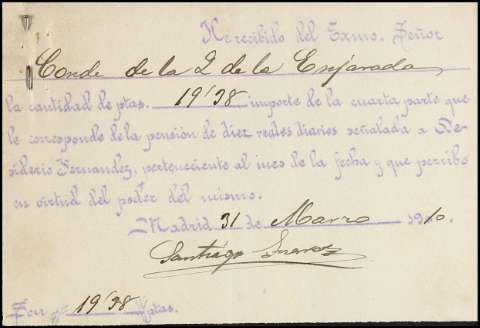 He recibido del Exmo. Señor
Conde de la Q de la Enjarada
la cantidad de ptas. 19'38 importe de la cuarta parte que
le corresponde de la pensión de diez reales diarios señalada a De-
siderio Hernandez, perteneciente al mes de la fecha y que percibo
en virtud del poder del mismo.
Madrid 31 de Marzo 1910.
Santiago Suarez
Son 19'38 ptas.